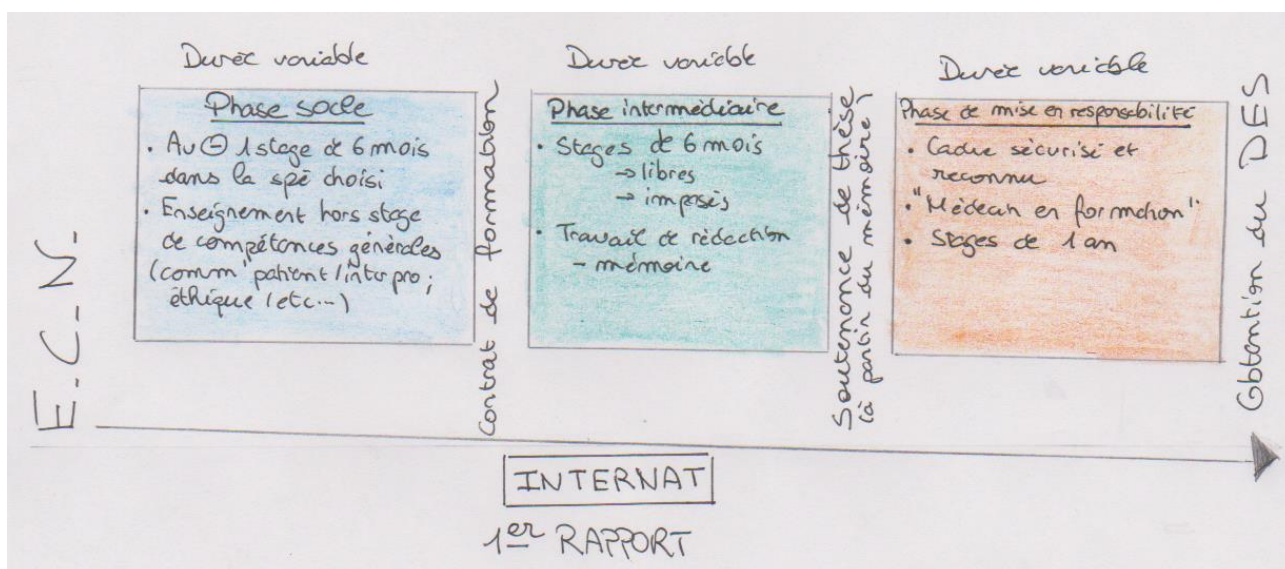 E.C.N.
Durée variable
Phase socle
• Au ⊖ 1 stage de 6 mois
dans la spé choisi
• Enseignement hors stage
de compétences générales
(comm° patient/interpro ;
éthique/etc...)
Contrat de formation
Durée variable
Phase intermédiaire
• Stages de 6 mois
→ libres
→ imposés
• Travail de rédaction
- mémoire
Soutenance de thèse
(à partir du mémoire)
Durée variable
Phase de mise en responsabilité
• Cadre sécurisé et
reconnu
• "Médecin en formation"
• Stages de 1 an
Obtention du DES
INTERNAT
1er RAPPORT